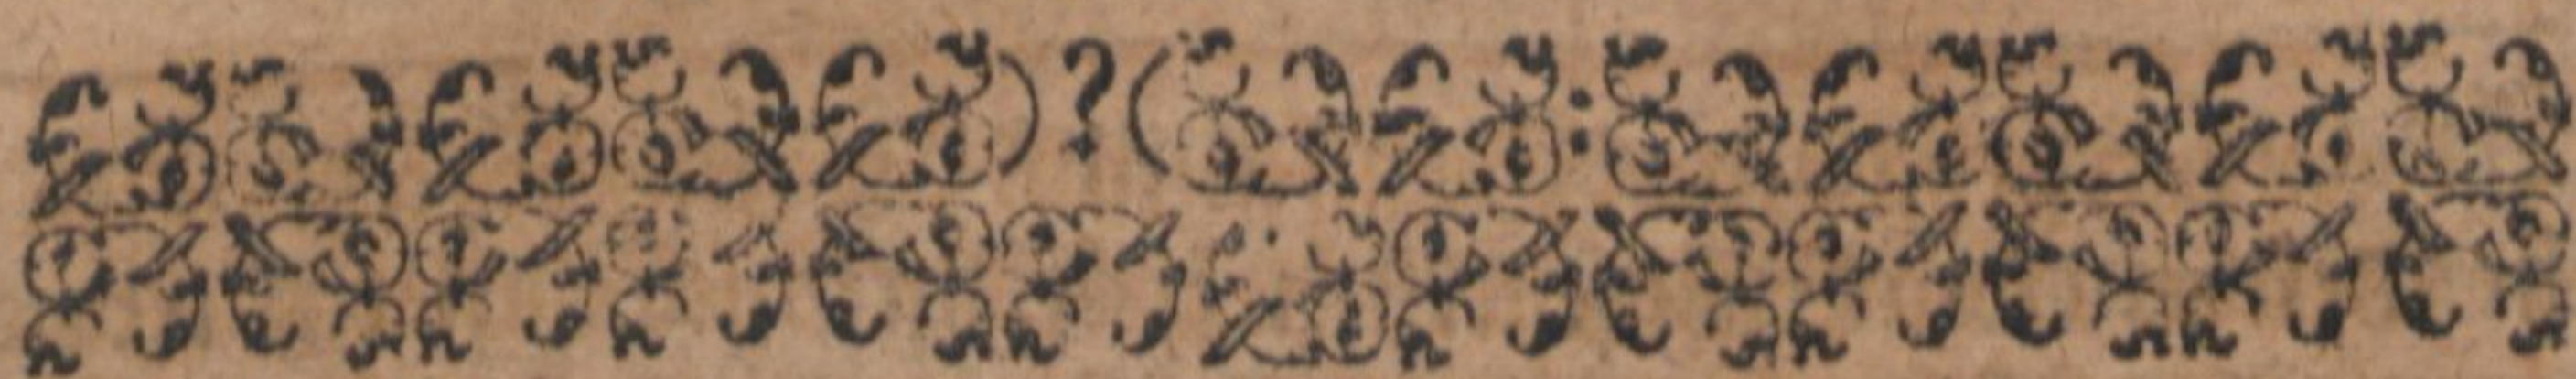 )?( :